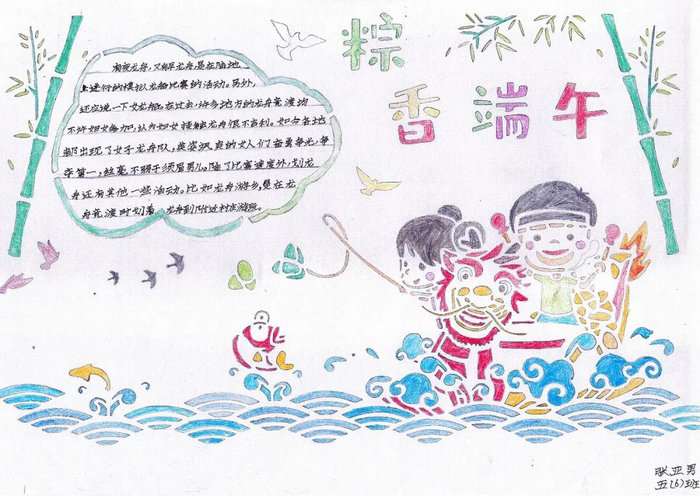 粽香端午
划旱龙舟,又称龙舟,是在陆地
上进行的模拟龙船比赛的活动。另外,
还应说一下女龙船。在过去,许多地方的龙舟竞渡均
不许妇女参加,认为妇女接触龙舟很不吉利。如今各地
都出现了女子龙舟队,英姿飒爽的女人们奋勇争光,争
夺第一,丝毫不弱于须眉男儿。除了比赛速度外,划龙
舟还有其他一些活动。比如龙舟游乡,是在龙
舟竞渡时划着龙舟到附近村庄游玩。
张亚男
五(6)班